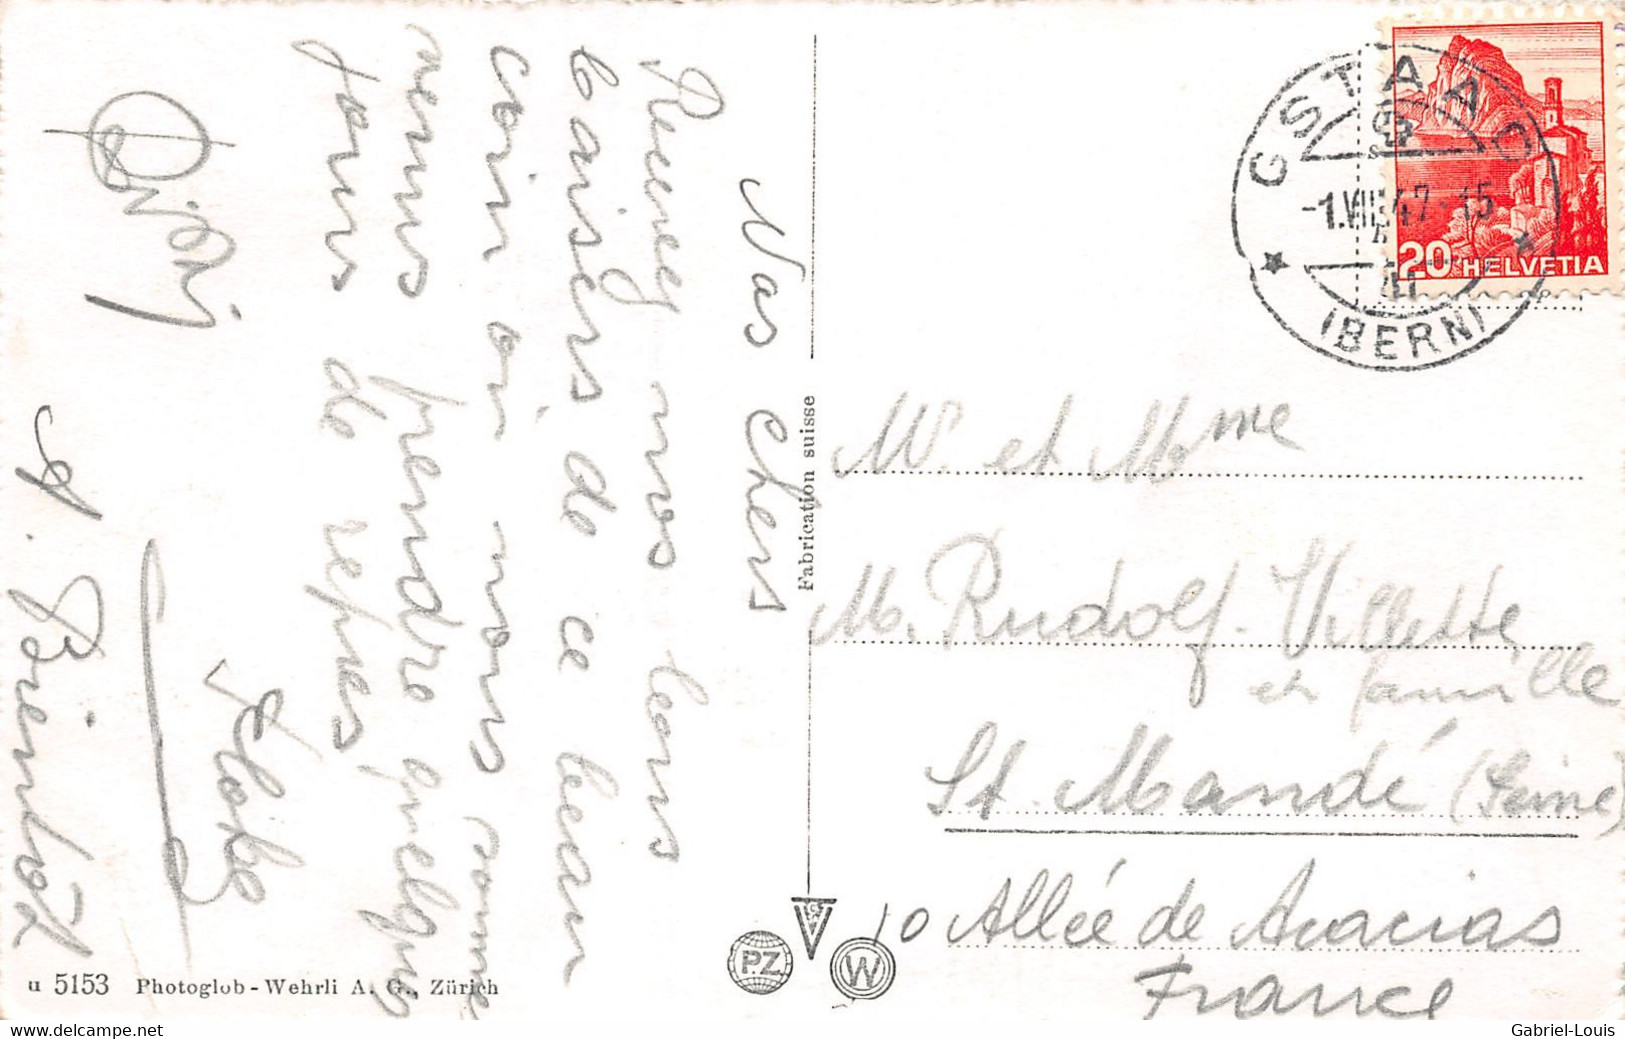 Nos chers
Recevez nos bons
baisers de ce beau
coin où nous sommes
venus prendre quelques
jours de repos
A. Bientôt
Fabrication suisse
GSTAAD
-1.VIII.47.-15
(BERN)
20 HELVETIA
Mr et Mme
M. Rudolf. Villette
et famille
St. Mandé (Seine)
10 Allée de Acacias
France
PZ
W
u 5153 Photoglob-Wehrli A. G., Zürich
Gabriel-Louis
www.delcampe.net